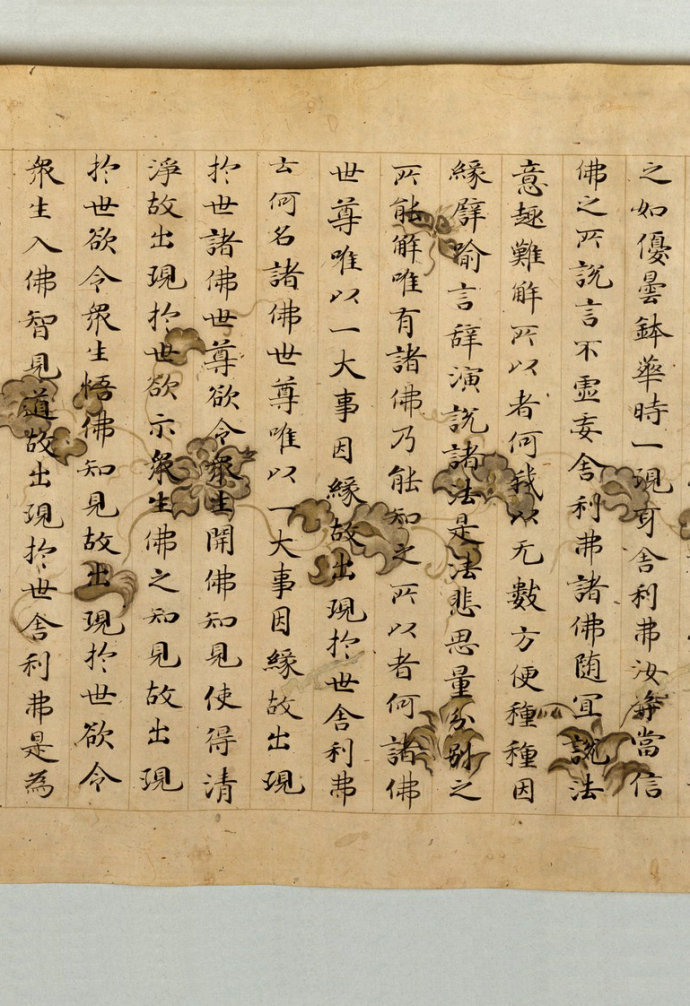 之如優曇鉢華時一現耳舍利弗汝等當信
佛之所說言不虛妄舍利弗諸佛随宜說法
意趣難解所以者何我以无數方便種種因
緣譬喻言辭演說諸法是法悲思量分別之
所能解唯有諸佛乃能知之所以者何諸佛
世尊唯以一大事因緣故出現於世舍利弗
云何名諸佛世尊唯以一大事因緣故出現
於世諸佛世尊欲令衆生開佛知見使得清
淨故出現於世欲示衆生佛之知見故出現
於世欲令衆生悟佛知見故出現於世欲令
衆生入佛智見道故出現於世舍利弗是為